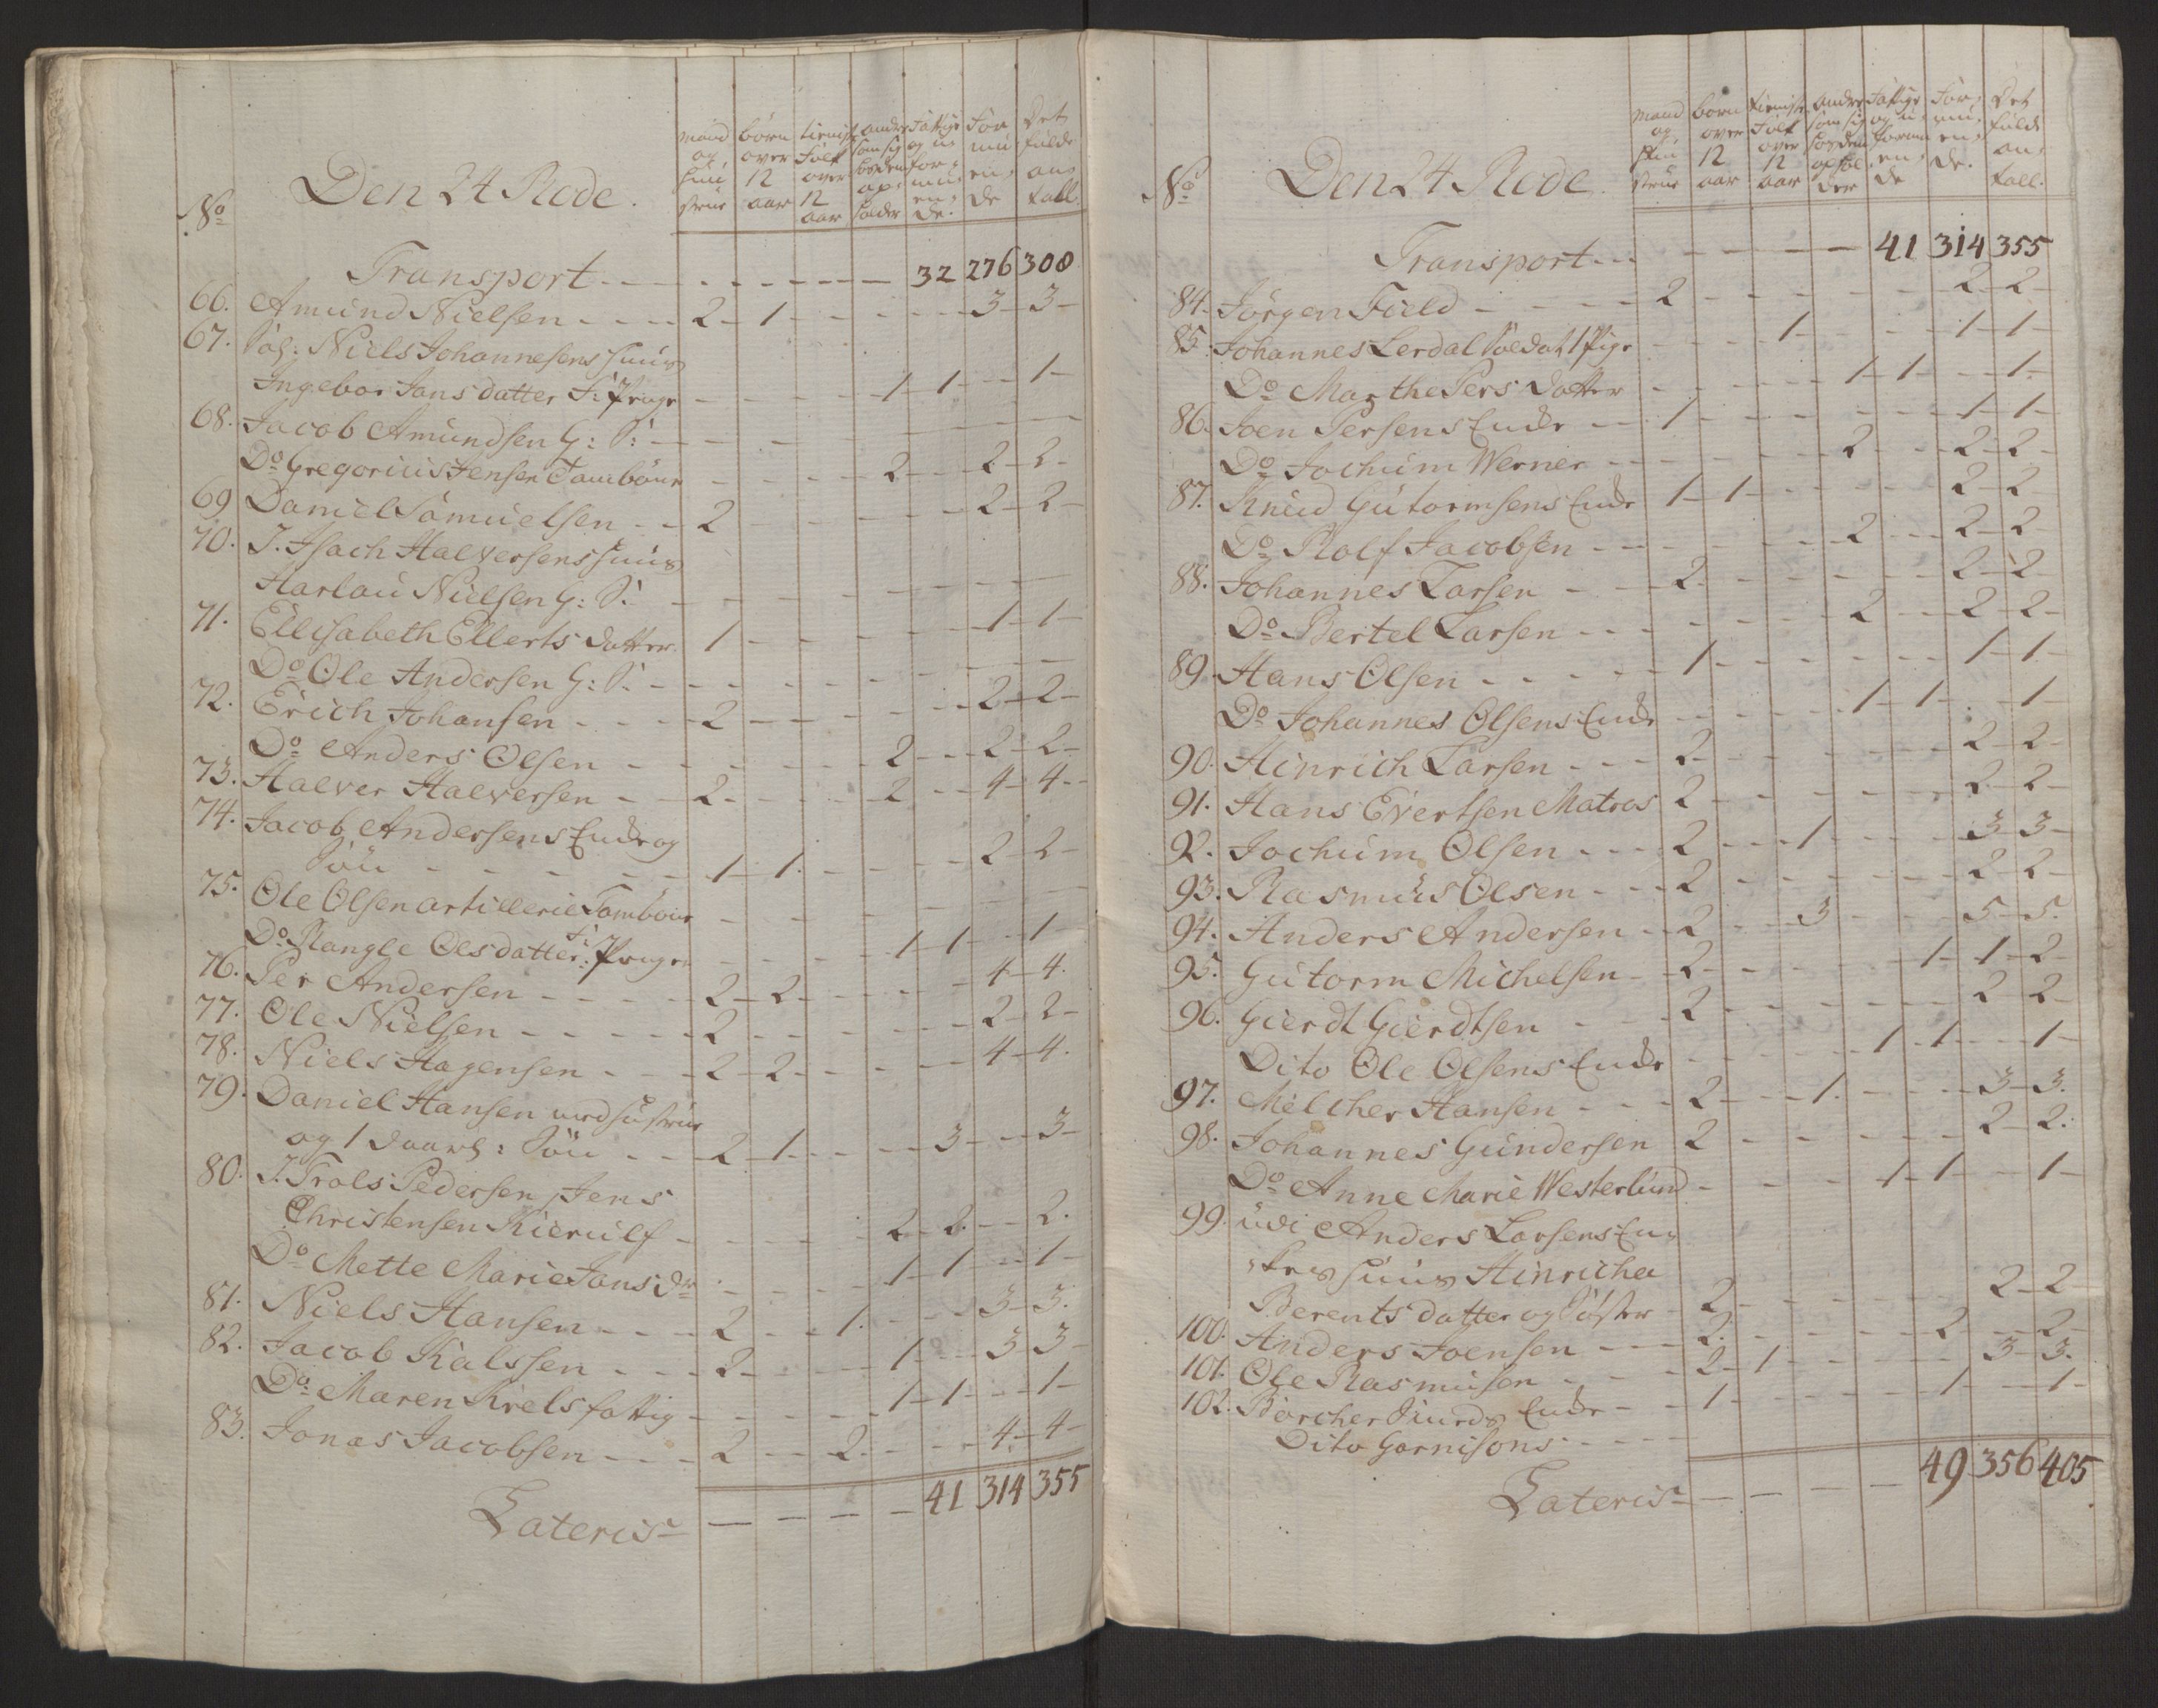 No
Den 24 Rode.
mand og hustrue
børn over 12 aar
tieniste Folk over 12 aar
andre som sig sorden op, holder
Fattige og u, for, mu, en, de.
For mu en, de
Det fulde an, tall.
Transport - - - - - - - - 32 276 308
66. Amund Nielsen - - - - 2 - 1 - - - - - 3 - 3 -
67. Sal: Niels Johannesens huus
Ingebor Jans datter - - - - 1 - 1 - - 1 -
68. Jacob Amundsen G: S: - - - -
Do Gregorius Jensen Tambour - - - - 2 - - 2 - 2 -
69 Daniel Samuelsen - - 2 - - - 2 - 2 -
70. S. Isach Halversens huus
Harlau Nielsen G: S: - - - - -
71. Ellisabeth Ellerts datter 1 - - - - - 1 - 1 -
Do Ole Andersen G: S: - - - - -
72. Erich Johansen - - - - 2 - - - - - 2 - 2 -
Do Anders Olsen - - - - - 2 - - - 2 - 2 -
73. Halver Halversen - - 2 - - - 2 - - 4 - 4 -
74. Jacob Andersens Enke og
Søn - - - - - 1 - 1 - - - 2 - 2 -
75. Ole Olsen artillerie Tambour - - - - -
Do Rangle Olsdatter - - - - 1 - 1 - - 1 -
76. Per Andersen - - - - - 2 - 2 - - - - 4 - 4.
77. Ole Nielsen - - - - - 2 - - - - - 2 - 2 -
78. Niels Hagensen - - - 2 - 2 - - - - 4 - 4.
79. Daniel Hansen med hustrue
og 1 daarl: Søn - - - 2 - 1 - - - - 3 - - 3 -
80. S. Trols Pedersen, Jens
Christensen Kierulf - - - - - 2 - 2. - - 2.
Do Mette Marie Jans dr - - - - 1 - 1 - - 1 -
81. Niels Hansen - - - - 2 - - 1. - - - 3 - 3.
82. Jacob Kalssen - - - - 2 - - - 1 - - - 3 3 -
Do Maren Kiels fattig - - - - - 1 - 1 - - 1 -
83. Jonas Jacobsen - - - - 2 - - 2. - - - 4 - 4 -
Lateris - - - - 41 314 355
No
Den 24 Rode.
mand og hu strue
børn over 12 aar
tieniste Folk over 12 aar
andre som sig sorden ophol der
Fattige og u, formu en, de
For, mu, en, de.
Det fulde an, tall.
Transport - - - - - - 41 314 355
84. Jørgen Field - - - - 2 - - - - - 2 - 2 -
85. Johannes Lerdal Soldat 1 Pige - - - 1 - - - 1 - 1 -
Do Marthe Pers datter - - - - 1 - 1 - - 1 -
86. Joen Persens Enke - - 1 - - - - - 1 - 1 -
Do Jochum Werner - - - - - 2 - - 2 - 2 -
87. Knud Gutormsens Enke 1 - 1 - - - - 2 - 2 -
Do Rolf Jacobsen - - - - - - 2 - - 2 - 2
88. Johannes Larsen - - - 2 - - - - - 2 - 2 -
Do Bertel Larsen - - - - - - 2 - - 2 - 2 -
89. Hans Olsen - - - - - 1 - - - - - - 1 - 1 -
Do Johannes Olsens Enke - - - - 1 - 1 - - 1 -
90. Hinrich Larsen - - - 2 - - - - - 2 - 2 -
91. Hans Evertsen Matros 2 - - - - - 2 - 2 -
92. Jochum Olsen - - - 2 - - - 1 - - - 3 - 3 -
93. Rasmus Olsen - - - 2 - - - - - 2 - 2 -
94. Anders Andersen - - 2 - - - 3 - - - 5 - 5.
95. Gutorm Michelsen - - 2 - - - - - 1 - 1 - 2 -
96. Gierdt Gierdtsen - - - 2 - - - - - 2 - 2 -
Dito Ole Olsens Enke - - - - 1 - 1 - - 1 -
97. Melcher Hansen - - - 2 - - - 1. - - - 3 - 3.
98. Johannes Gundersen 2 - - - - - 2 - 2.
Do Anne Marie Westerlund - - - - 1 - 1 - - 1 -
99. udi Anders Larsens En,
kes huus Hinricha
Berents datter og Søster - 2 - - - - - 2 - 2
100. Anders Joensen - - - 2. - - - - - 2 - - 2 -
101. Ole Rasmusen - - - - 2 - 1 - - - - 3 - 3.
102. Borcher Siurds Enke - - 1 - - - - - 1 - - 1 -
Dito Garnisons - - - -
Lateris - - - - 49 356 405